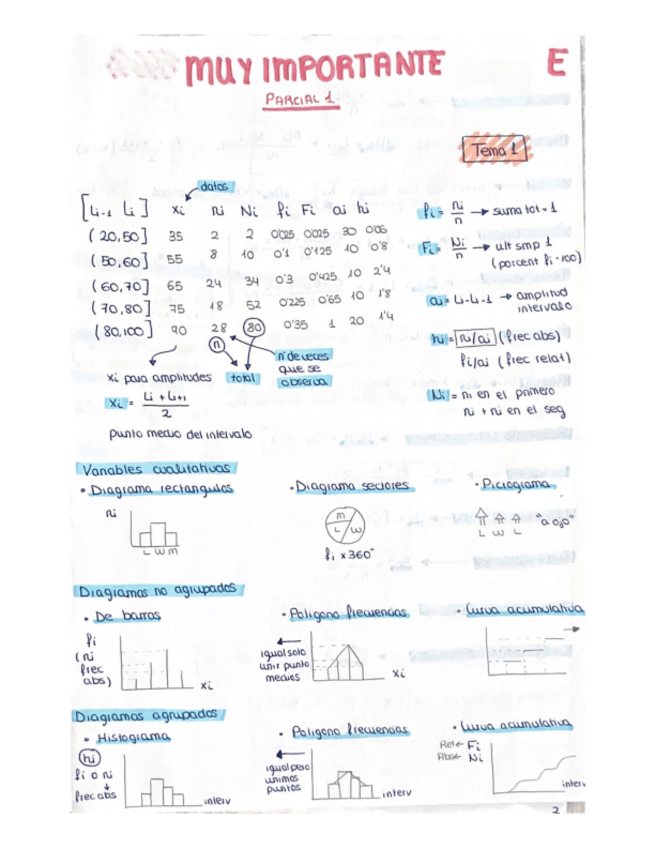 MUY IMPORTANTE E
PARCIAL 1
Tema 1
datos
[Li-1 Li] xi ni Ni fi Fi ai hi
(20,50] 35 2 2 0'025 0'025 30 0'06
(50,60] 55 8 10 0'1 0'125 10 0'8
(60,70] 65 24 34 0'3 0'425 10 2'4
(70,80] 75 18 52 0'225 0'65 10 1'8
(80,100] 90 28 80 0'35 1 20 1'4
n
xi para amplitudes total nº de veces
que se
observa
xi = Li + Li+1
2
punto medio del intervalo
fi = ni/n → suma tot = 1
Fi = Ni/n → ult smp 1
(porcent fi · 100)
ai = Li-Li-1 → amplitud
intervalo
hi = ni/ai (frec abs)
fi/ai (frec relat)
Ni = ni en el primero
ni + ni en el seg
Variables cualitativas
• Diagrama rectangulos
ni
L W M
• Diagrama sectores
M
L W
fi x 360°
• Pictograma
"a ojo"
L W L
Diagramas no agrupados
• De barras
fi
(ni
frec
abs)
xi
• Poligono frecuencias
igual solo
unir punto
medios
xi
• Curva acumulativa
Diagramas agrupados
• Histograma
hi
fi o ni
frec abs
interv
• Poligono frecuencias
igual peso
unimos
puntos
interv
• Curva acumulativa
Rel ← Fi
Abs ← Ni
interv
2